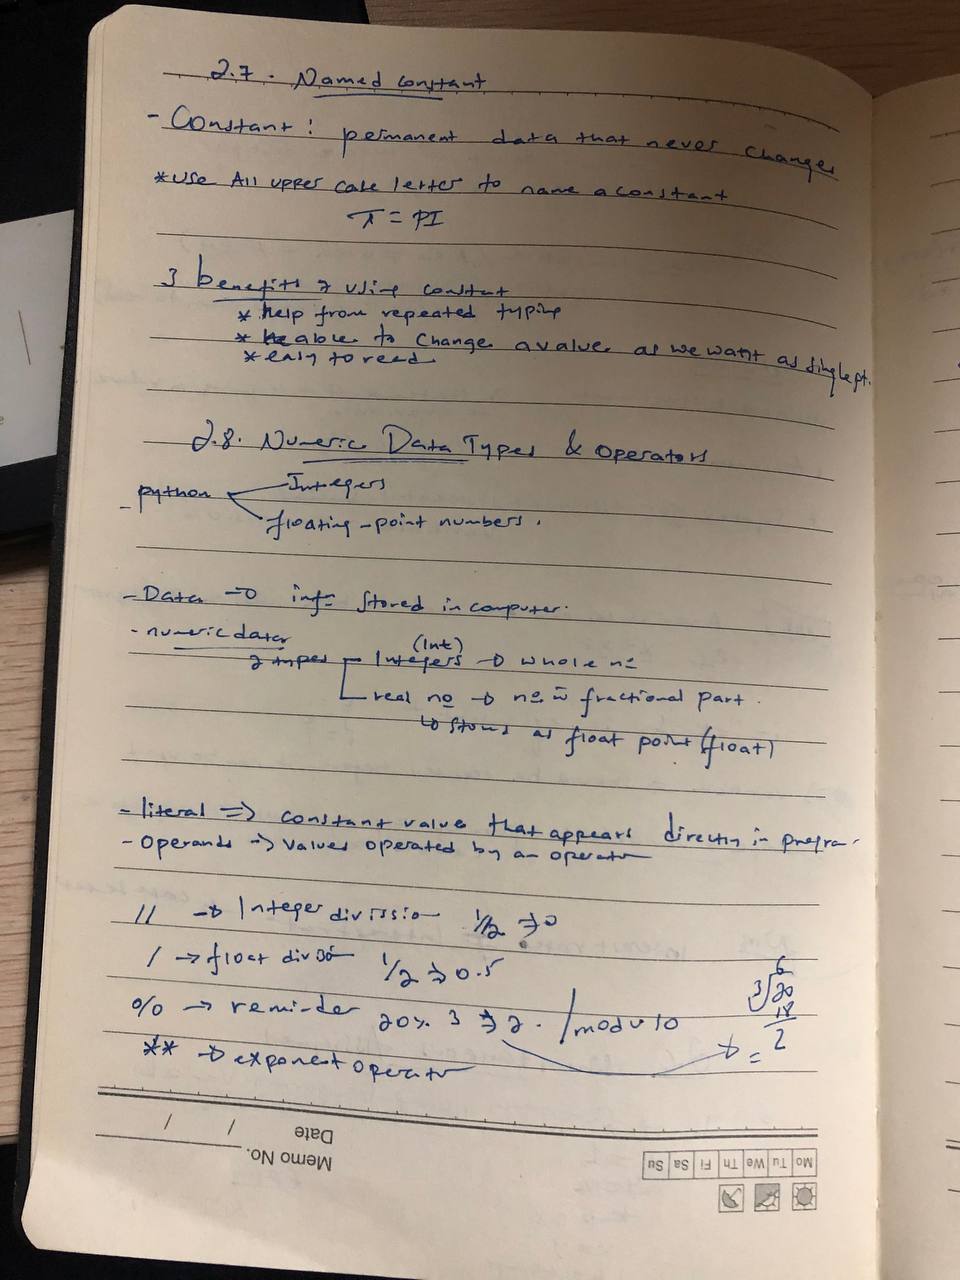 2.7. Named Constant
- Constant: permanent data that never changes
* Use All upper case letter to name a constant
π = PI
3 benefits of using constant
* help from repeated typing
* able to change a value as we want as single pt.
* easy to read
2.8. Numeric Data Types & Operators
- python
Integers
floating-point numbers.
- Data → info stored in computer.
- numeric data
2 types
(Int)
Integers → whole no
real no → no w̄ fractional part.
↳ stored as float point (float)
- literal ⇒ constant value that appears directly in progra
- Operands → values operated by an operator
// → Integer division 1/2 → 0
/ → float division 1/2 ⇒ 0.5
% → reminder 20% 3 ⇒ 2. / modulo
6
3 20
18
= 2
** → exponent operator
Date / /
Memo No.
Mo Tu We Th Fi Sa Su